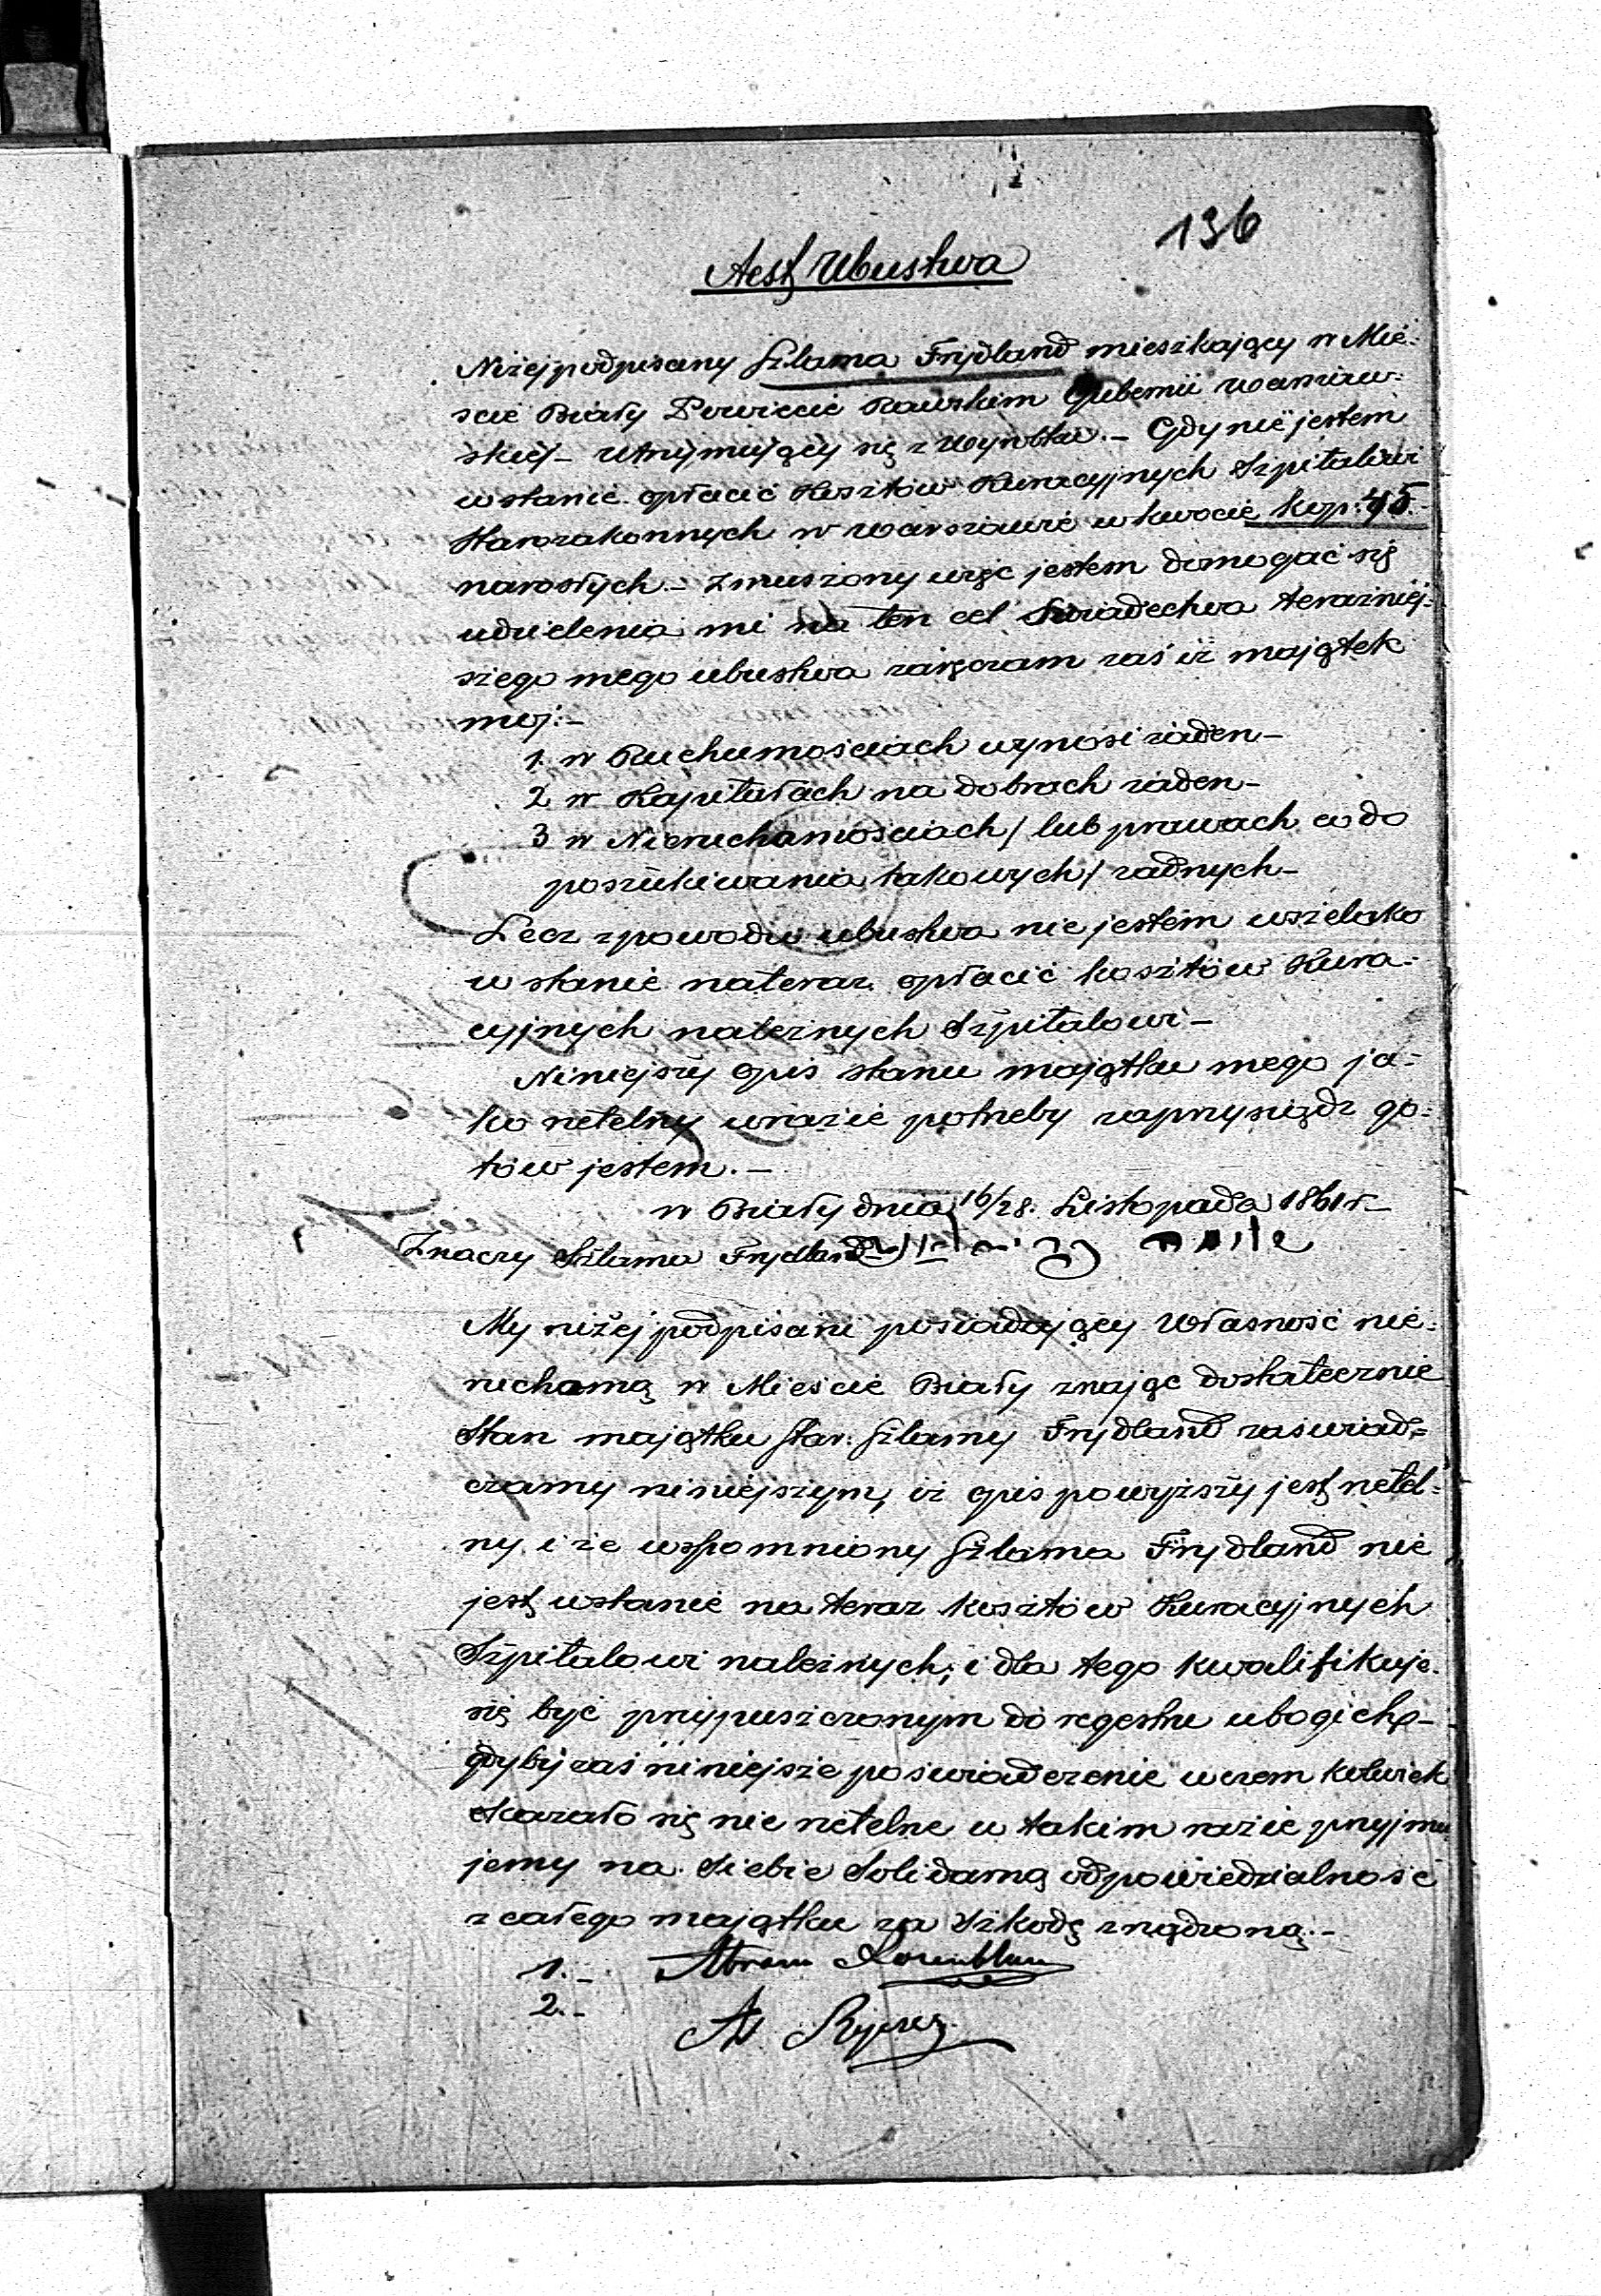 136
Atest Ubustwa
Niżej podpisany Szlama Frydland mieszkający w Mie-
scie Biały Powiecie Rawskim Gubernii Warszaw-
skiej – utrzymujący się z wyrobku. – Gdy nie jestem
w stanie opłacić Kosztów Kuracyjnych Szpitalowi
Starozakonnych w Warszawie w kwocie kop: 45.
narosłych. – zmuszony więc jestem domogać się
udzielenia mi na ten cel Swiadectwa teraźniej-
szego mego ubustwa zaręczam zaś iż majątek
moj: –
1. w Ruchumościach wynosi żaden –
2 w Kapitałach na dobrach żaden –
3 w Nieruchomościach / lub prawach co do
poszukiwania takowych / żadnych –
Lecz z powodu ubustwa nie jestem wszelako
w stanie nateraz opłacić kosztów Kura-
cyjnych należnych Szpitalowi –
Niniejszy opis stanu majątku mego ja-
ko rzetelny w razie potrzeby zaprzysiądz go-
tów jestem. –
w Biały dnia 16/28. Listopada 1861 r. –
Znaczy Szlama Frydland שלמה
My niżej podpisani posiadający Własność nie-
ruchomą w Mieście Biały znając dostatecznie
Stan majątku Star: Szlamy Frydland zaswiad-
czamy niniejszym, iż opis powyższy jest rzetel-
ny i że wspomniony Szlama Frydland nie
jest wstanie na teraz kosztów Kuracyjnych
Szpitalowi należnych; i dla tego kwalifikuje
się być przypuszczonym do regestru ubogich –
gdyby zaś niniejsze poswiadczenie w czem kolwiek
okazało się nie rzetelne w takim razie przyjmu
jemy na siebie Solidarną odpowiedzialność
z całego majątku za szkodę zrządzoną. –
1. – Abram Rosenblum
2. – A